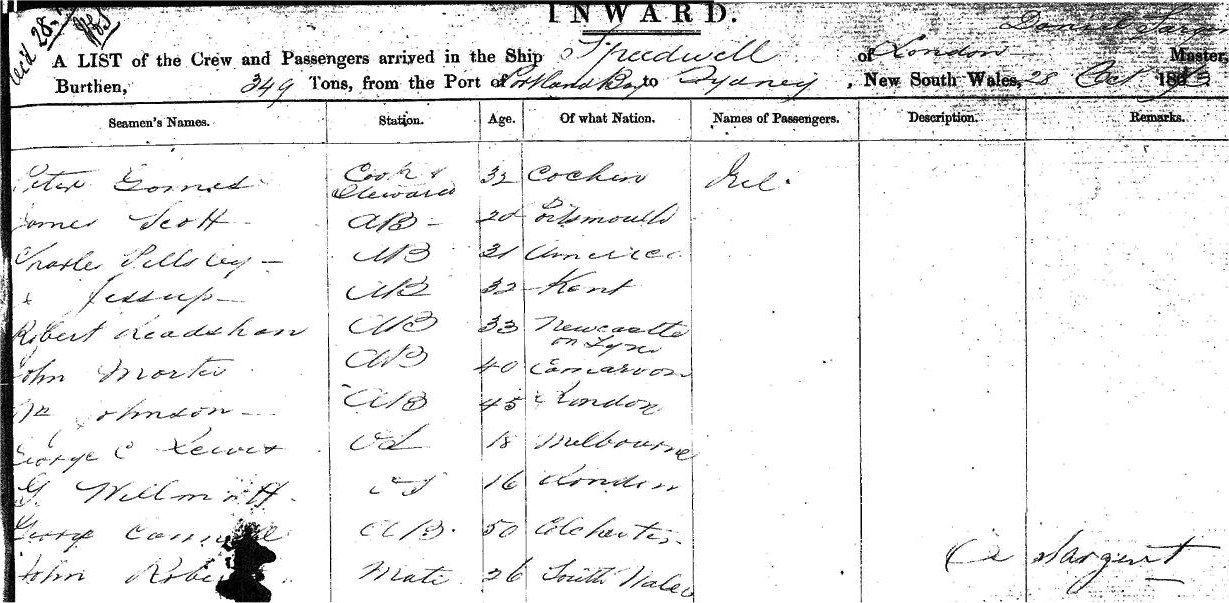 INWARD.
A LIST of the Crew and Passengers arrived in the Ship Speedwell of London Daniel Master,
Burthen, 349 Tons, from the Port of Portland Bay to Sydney, New South Wales, 28 Oct 18
Seamen's Names. Station. Age. Of what Nation. Names of Passengers. Description. Remarks.
Peter Gomes Cook & Steward 32 Cochin Nil.
James Scott AB 20 Portsmouth
Charles AB 31 America
Jessup AB 32 Kent
Robert AB 33 Newcastle on Tyne
John AB 40
Wm Johnson AB 45 London
George C Lewis 18 Melbourne
G. Willmott 16 London
George AB. 50 Colchester
John Mate 26 South Wales
Sargent